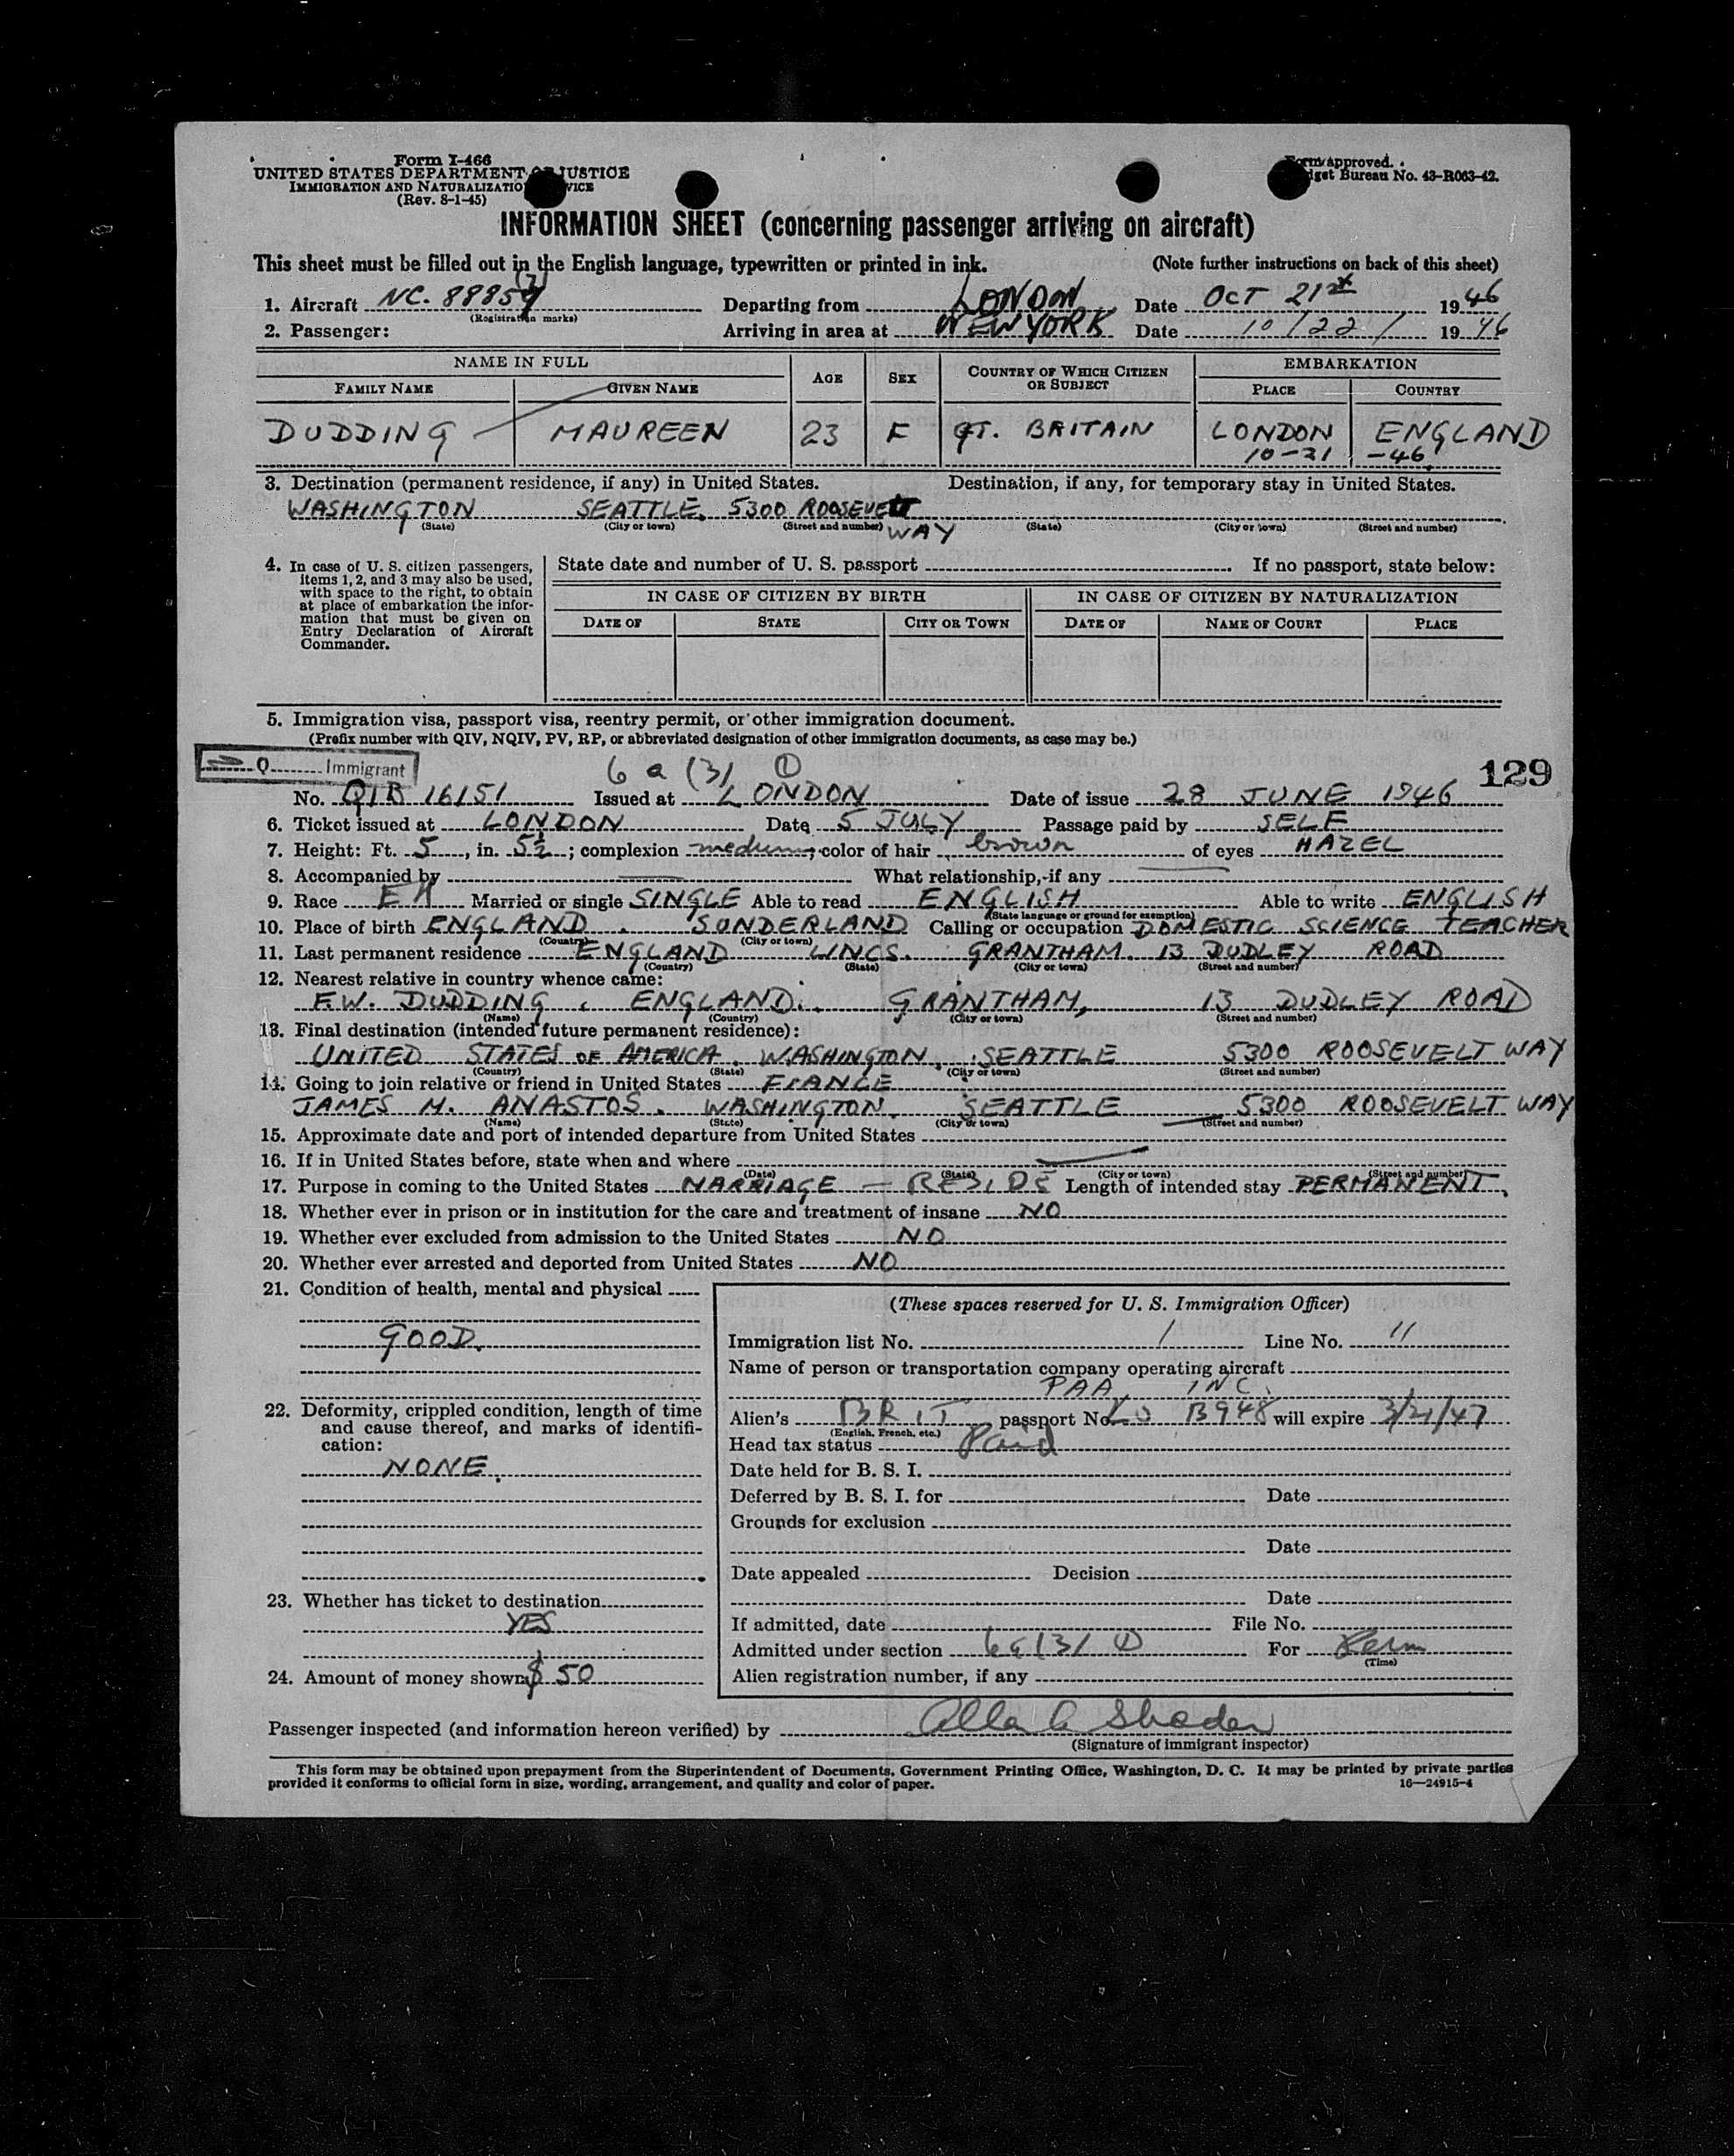 Form I-466
UNITED STATES DEPARTMENT OF JUSTICE
IMMIGRATION AND NATURALIZATION SERVICE
(Rev. 8-1-45)
Form approved.
Budget Bureau No. 43-R063-42.
INFORMATION SHEET (concerning passenger arriving on aircraft)
This sheet must be filled out in the English language, typewritten or printed in ink. (Note further instructions on back of this sheet)
1. Aircraft NC. 88859 Departing from LONDON Date OCT 21st 1946
(Registration marks)
2. Passenger: Arriving in area at NEW YORK Date 10/22/ 1946
NAME IN FULL AGE SEX COUNTRY OF WHICH CITIZEN OR SUBJECT EMBARKATION
FAMILY NAME GIVEN NAME PLACE COUNTRY
DUDDING MAUREEN 23 F GT. BRITAIN LONDON ENGLAND
10-21 -46
3. Destination (permanent residence, if any) in United States. Destination, if any, for temporary stay in United States.
WASHINGTON SEATTLE, 5300 ROOSEVELT
(State) (City or town) (Street and number) WAY (State) (City or town) (Street and number)
4. In case of U. S. citizen passengers, items 1, 2, and 3 may also be used, with space to the right, to obtain at place of embarkation the information that must be given on Entry Declaration of Aircraft Commander.
State date and number of U. S. passport If no passport, state below:
IN CASE OF CITIZEN BY BIRTH IN CASE OF CITIZEN BY NATURALIZATION
DATE OF STATE CITY OR TOWN DATE OF NAME OF COURT PLACE
5. Immigration visa, passport visa, reentry permit, or other immigration document.
(Prefix number with QIV, NQIV, PV, RP, or abbreviated designation of other immigration documents, as case may be.)
Q Immigrant 6 a (3) 1 129
No. QIB 16151 Issued at LONDON Date of issue 28 JUNE 1946
6. Ticket issued at LONDON Date 5 JULY Passage paid by SELF
7. Height: Ft. 5, in. 5½; complexion medium; color of hair brown of eyes HAZEL
8. Accompanied by What relationship, if any
9. Race Married or single SINGLE Able to read ENGLISH Able to write ENGLISH
(State language or ground for exemption)
10. Place of birth ENGLAND. SUNDERLAND Calling or occupation DOMESTIC SCIENCE TEACHER
(Country) (City or town)
11. Last permanent residence ENGLAND LINCS. GRANTHAM. 13 DUDLEY ROAD
(Country) (State) (City or town) (Street and number)
12. Nearest relative in country whence came:
F.W. DUDDING, ENGLAND. GRANTHAM, 13 DUDLEY ROAD
(Name) (Country) (City or town) (Street and number)
13. Final destination (intended future permanent residence):
UNITED STATES OF AMERICA. WASHINGTON. SEATTLE 5300 ROOSEVELT WAY
(Country) (State) (City or town) (Street and number)
14. Going to join relative or friend in United States FIANCE
JAMES M. ANASTOS. WASHINGTON. SEATTLE 5300 ROOSEVELT WAY
(Name) (State) (City or town) (Street and number)
15. Approximate date and port of intended departure from United States
16. If in United States before, state when and where
(Date) (State) (City or town) (Street and number)
17. Purpose in coming to the United States MARRIAGE — RESIDE Length of intended stay PERMANENT.
18. Whether ever in prison or in institution for the care and treatment of insane NO
19. Whether ever excluded from admission to the United States NO
20. Whether ever arrested and deported from United States NO
21. Condition of health, mental and physical
GOOD.
22. Deformity, crippled condition, length of time and cause thereof, and marks of identification:
NONE.
23. Whether has ticket to destination
YES
24. Amount of money shown $ 50
(These spaces reserved for U. S. Immigration Officer)
Immigration list No. 1 Line No. 11
Name of person or transportation company operating aircraft
PAA, INC.
Alien's BRIT passport No. B948 will expire 3/21/47
(English, French, etc.)
Head tax status Paid
Date held for B. S. I.
Deferred by B. S. I. for Date
Grounds for exclusion
Date
Date appealed Decision
Date
If admitted, date File No.
Admitted under section 6a(3) 1 For Perm
(Time)
Alien registration number, if any
Passenger inspected (and information hereon verified) by
(Signature of immigrant inspector)
This form may be obtained upon prepayment from the Superintendent of Documents, Government Printing Office, Washington, D. C. It may be printed by private parties
provided it conforms to official form in size, wording, arrangement, and quality and color of paper. 16—24915-4